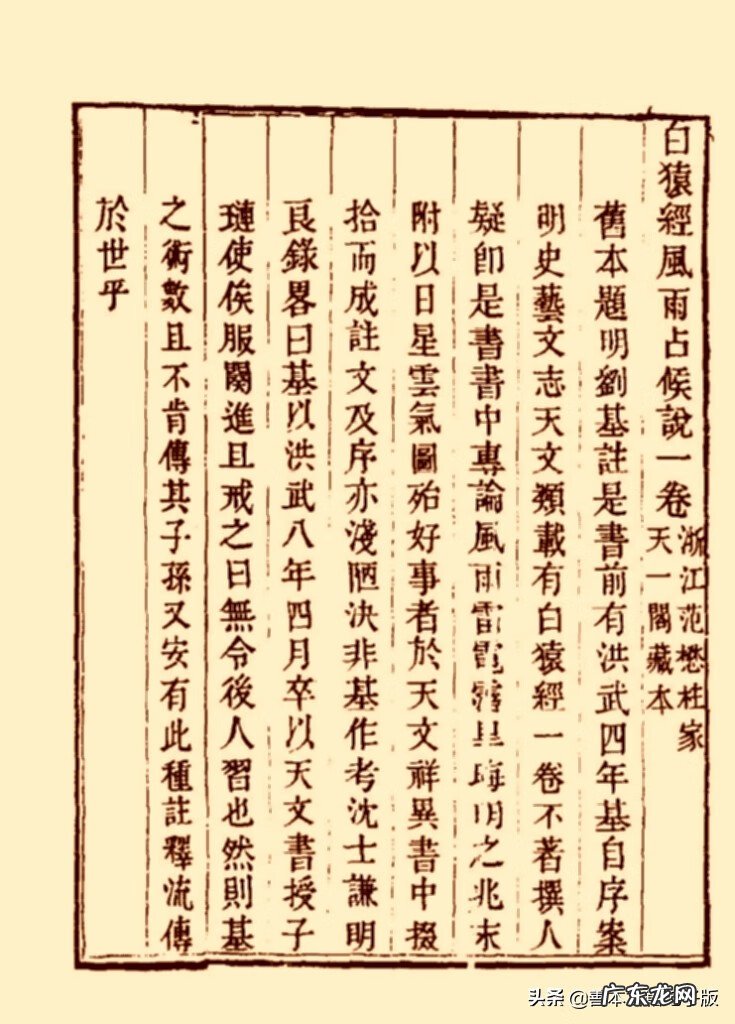 白猿經風雨占候說一卷
浙江范懋柱家
天一閣藏本
舊本題明劉基註是書前有洪武四年基自序案
明史藝文志天文類載有白猿經一卷不著撰人
疑卽是書書中專論風雨雷電露星晦明之兆末
附以日星雲氣圖殆好事者於天文祥異書中掇
拾而成註文及序亦淺陋決非基作考沈士謙明
良錄畧曰基以洪武八年四月卒以天文書授子
璉使俟服闋進且戒之曰無令後人習也然則基
之術數且不肯傳其子孫又安有此種註釋流傳
於世乎
头条 @善本
版
广东龙网